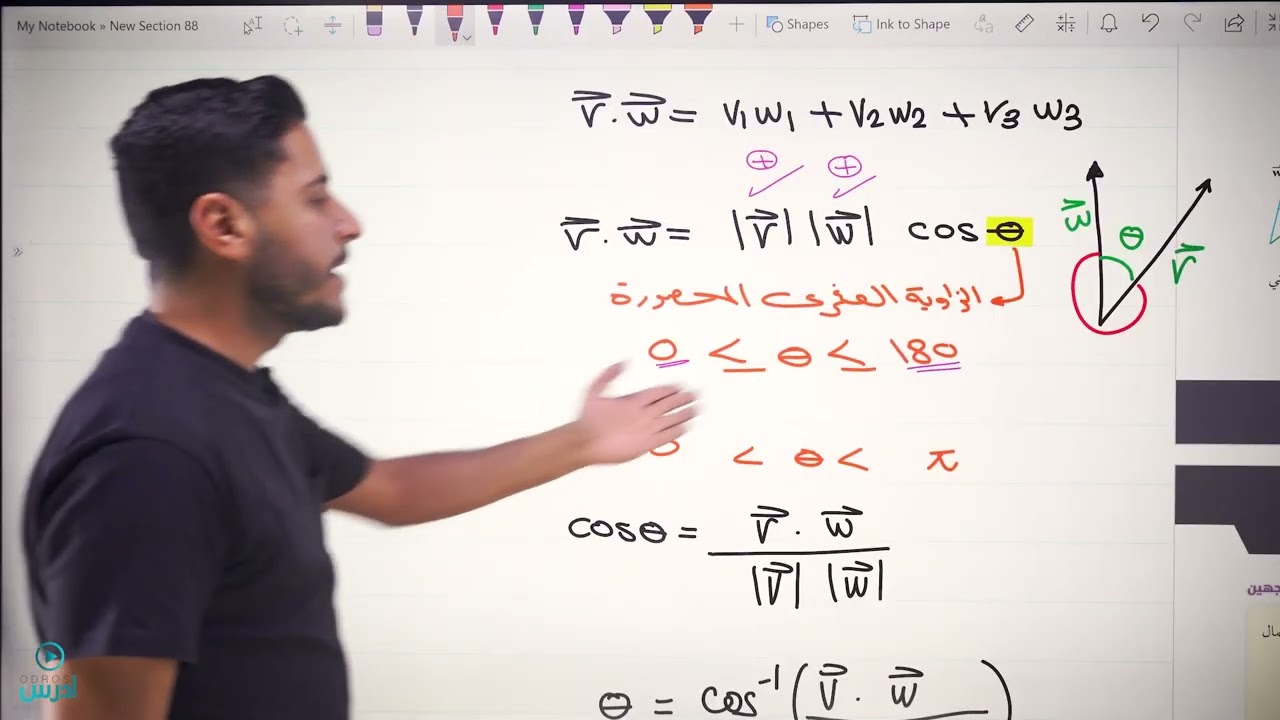 My Notebook » New Section 88
Shapes
Ink to Shape
v⃗ . w⃗ = v1w1 + v2w2 + v3 w3
+ +
v⃗ . w⃗ = |v⃗| |w⃗| cos θ
w⃗ θ v⃗
الزاوية الصغرى المحصورة
0 ≤ θ ≤ 180
0 < θ < π
cosθ = v⃗ . w⃗
|v⃗| |w⃗|
θ = cos⁻¹ ( v⃗ . w⃗ )
ODROS
أدرس